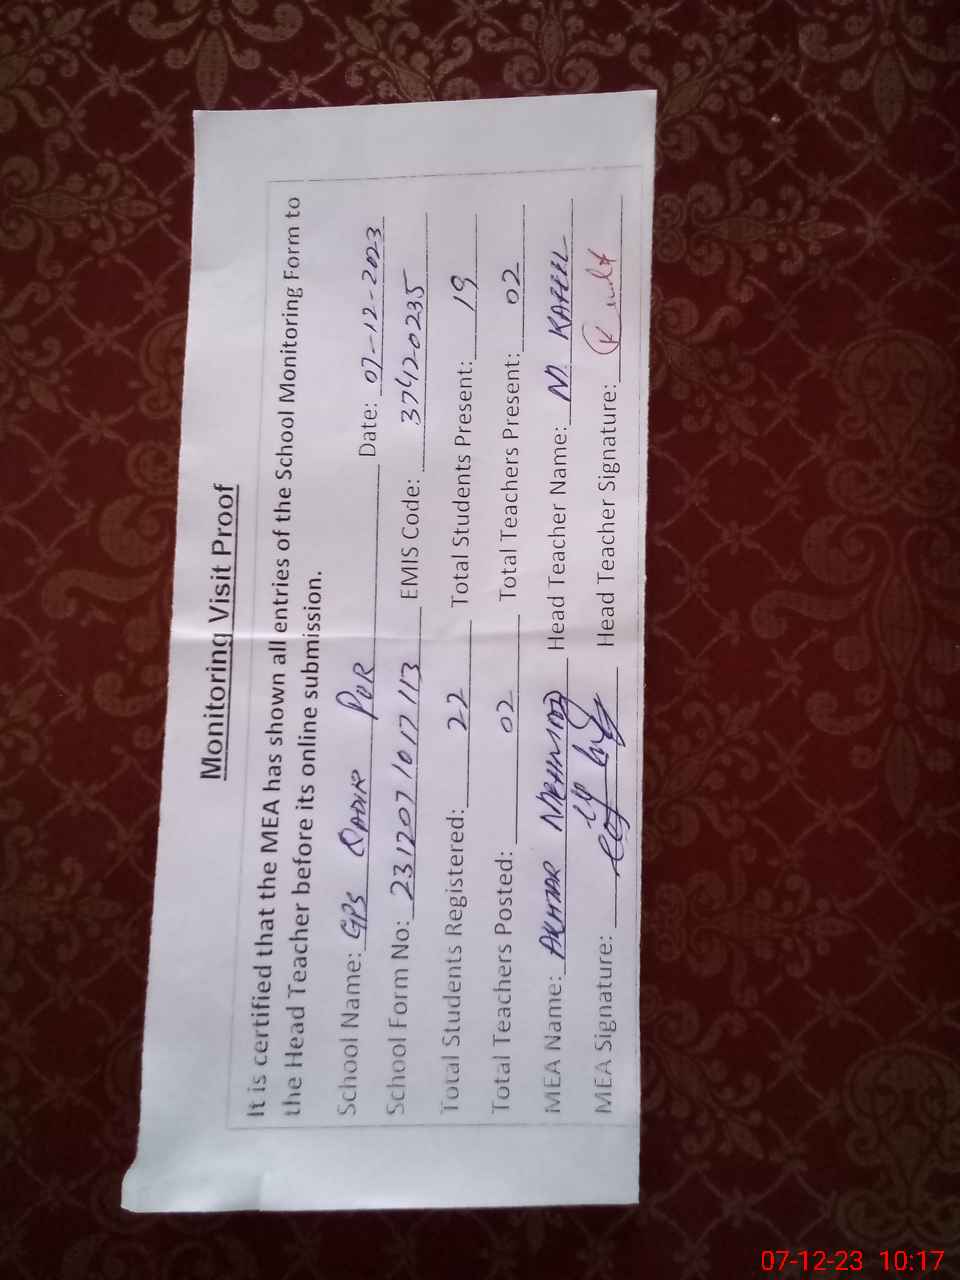 Monitoring Visit Proof
It is certified that the MEA has shown all entries of the School Monitoring Form to
the Head Teacher before its online submission.
School Name: GPS QADIR PUR Date: 07-12-2023
School Form No: 2312071017113 EMIS Code: 37420235
Total Students Registered: 22 Total Students Present: 19
Total Teachers Posted: 02 Total Teachers Present: 02
MEA Name: AKHTAR Head Teacher Name: M. KAFEEL
MEA Signature: Head Teacher Signature:
07-12-23 10:17